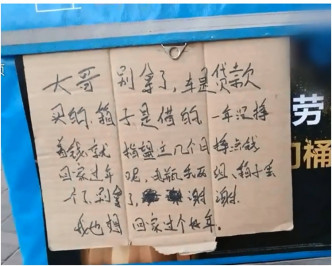 大哥 别拿了,车是贷款
买的,箱子是借的 一年没挣
着钱,就指望这几个日挣点钱
回家过年呢,东西 箱子丢
个了,别拿了, 谢谢.
我也想回家过个好年.
劳
桶